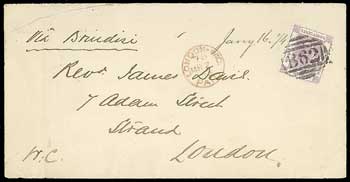 Via Brindisi Jany 16. 74
B62
LONDON
PAID
Revd James Davis.
7 Adam Street
Strand
W.C. London.